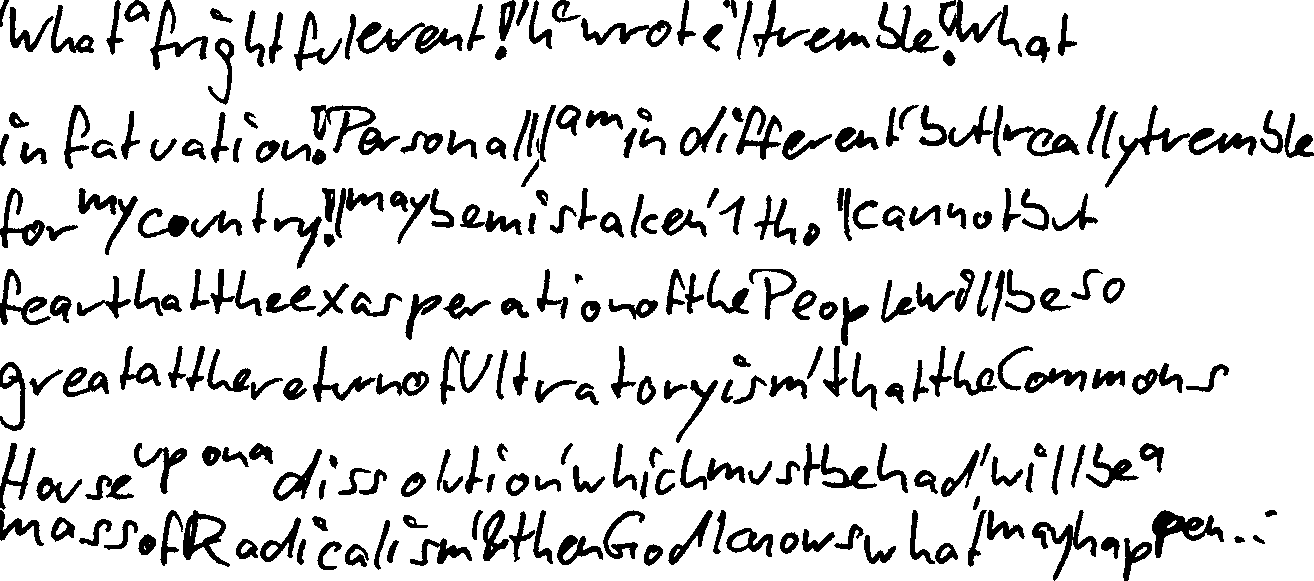 "What a frightful event!" he wrote "I tremble!" What
infatuation!" Personally, I am indifferent, but I really tremble
for my country!" I may be mistaken, 1 tho. "I cannot but
fear that the exasperation of the People will be so
great at the return of Ultratoryism, that the Commons
House upon a dissolution, which must be had, will be a
mass of Radicalism, & then God knows what may happen...